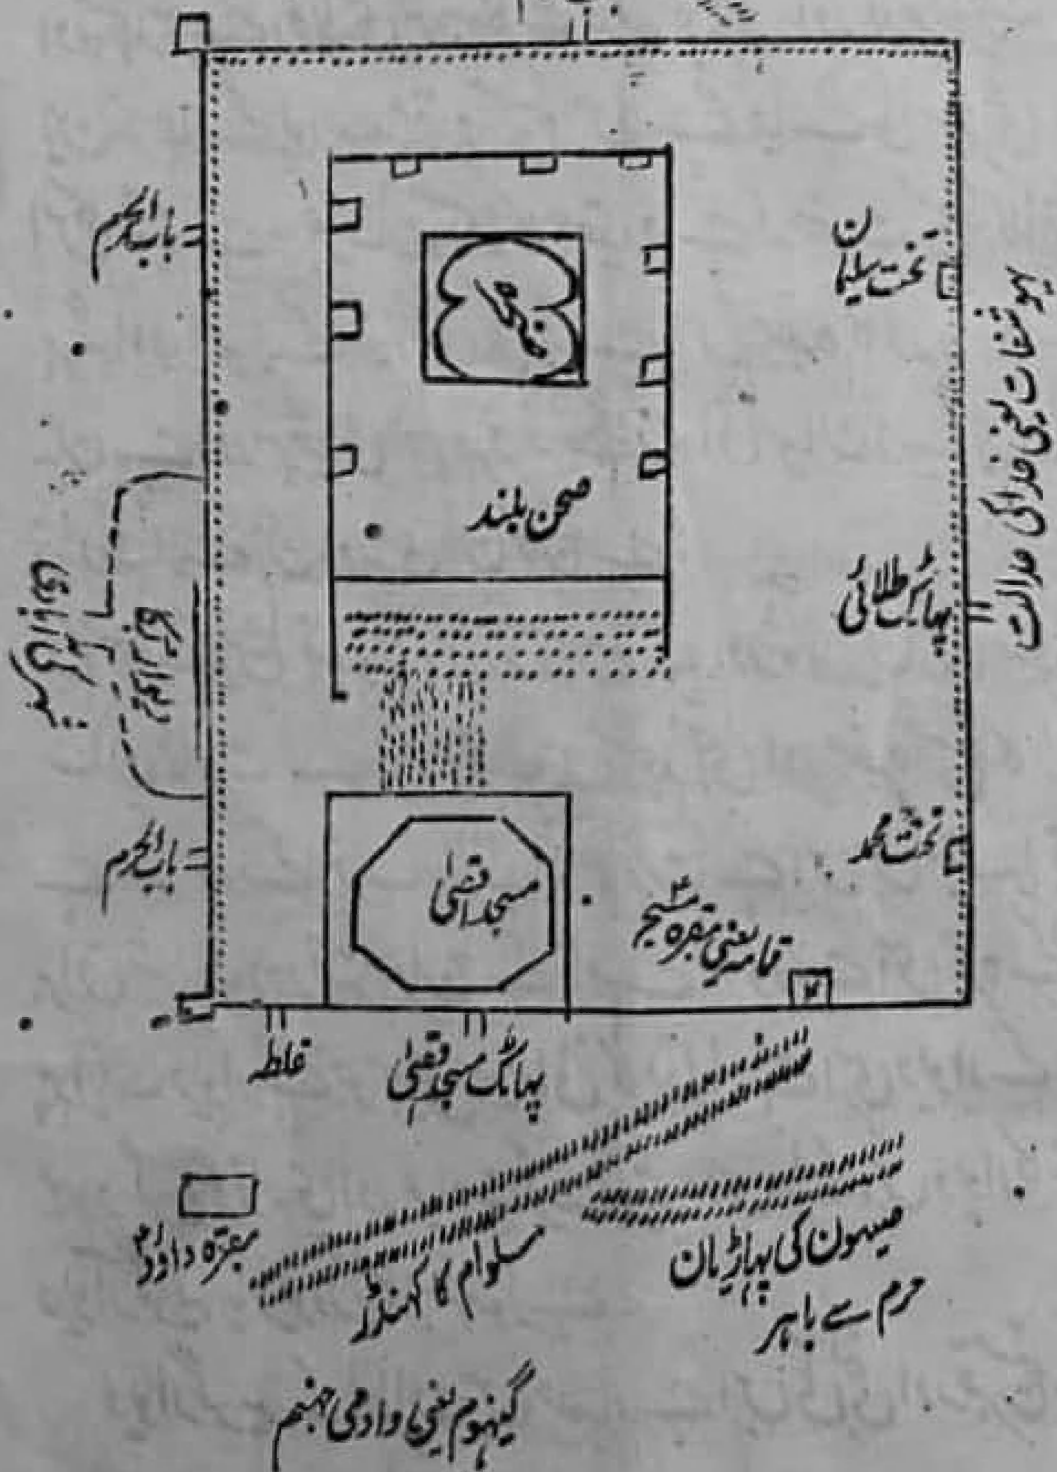 باب الحرم
تخت سلیمان
صخرہ
یہوشفات یعنی خدا کی عدالت
صحن بلند
پھاٹک طلائی
باب الحرم
تخت محمد
مسجد اقصیٰ
قمامہ یعنی مقبرہ مسیحؑ
غلطہ
پہاٹک مسجد اقصیٰ
مقبرہ داؤدؑ
سلوام کا کھنڈر
صیہون کی پہاڑیان
حرم سے باہر
گیہنوم یعنی وادی جہنم